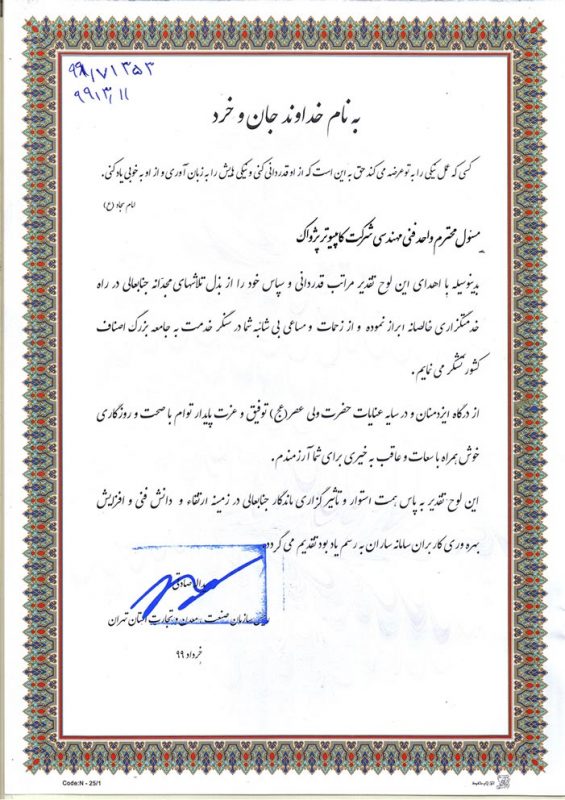 ۹۹/۷۱۳۵۳
۹۹/۳/۱۱
به نام خداوند جان و خرد
کسی که عمل نیکی را به تو عرضه می کند حق به این است که از او قدردانی کنی و نیکی هایش را به زبان آوری و از او به خوبی یاد کنی.
امام سجاد (ع)
مسئول محترم واحد فنی مهندسی شرکت کامپیوتر پژواک
بدینوسیله با اهدای این لوح تقدیر مراتب قدردانی و سپاس خود را از بذل تلاشهای مجدانه جنابعالی در راه
خدمتگزاری خالصانه ابراز نموده و از زحمات و مساعی بی شائبه شما در سنگر خدمت به جامعه بزرگ اصناف
کشور تشکر می نمایم.
از درگاه ایزدمنان و در سایه عنایات حضرت ولی عصر(عج) توفیق و عزت پایدار توام با صحت و روزگاری
خوش همراه با سعات و عاقب به خیری برای شما آرزمندم.
این لوح تقدیر به پاس همت استوار و تأثیر گزاری ماندگار جنابعالی در زمینه ارتقاء و دانش فنی و افزایش
بهره وری کاربران سامانه ساران به رسم یادبود تقدیم می گردد.
صادقی
سازمان صنعت، معدن و تجارت استان تهران
خرداد ۹۹
Code:N - 25/1